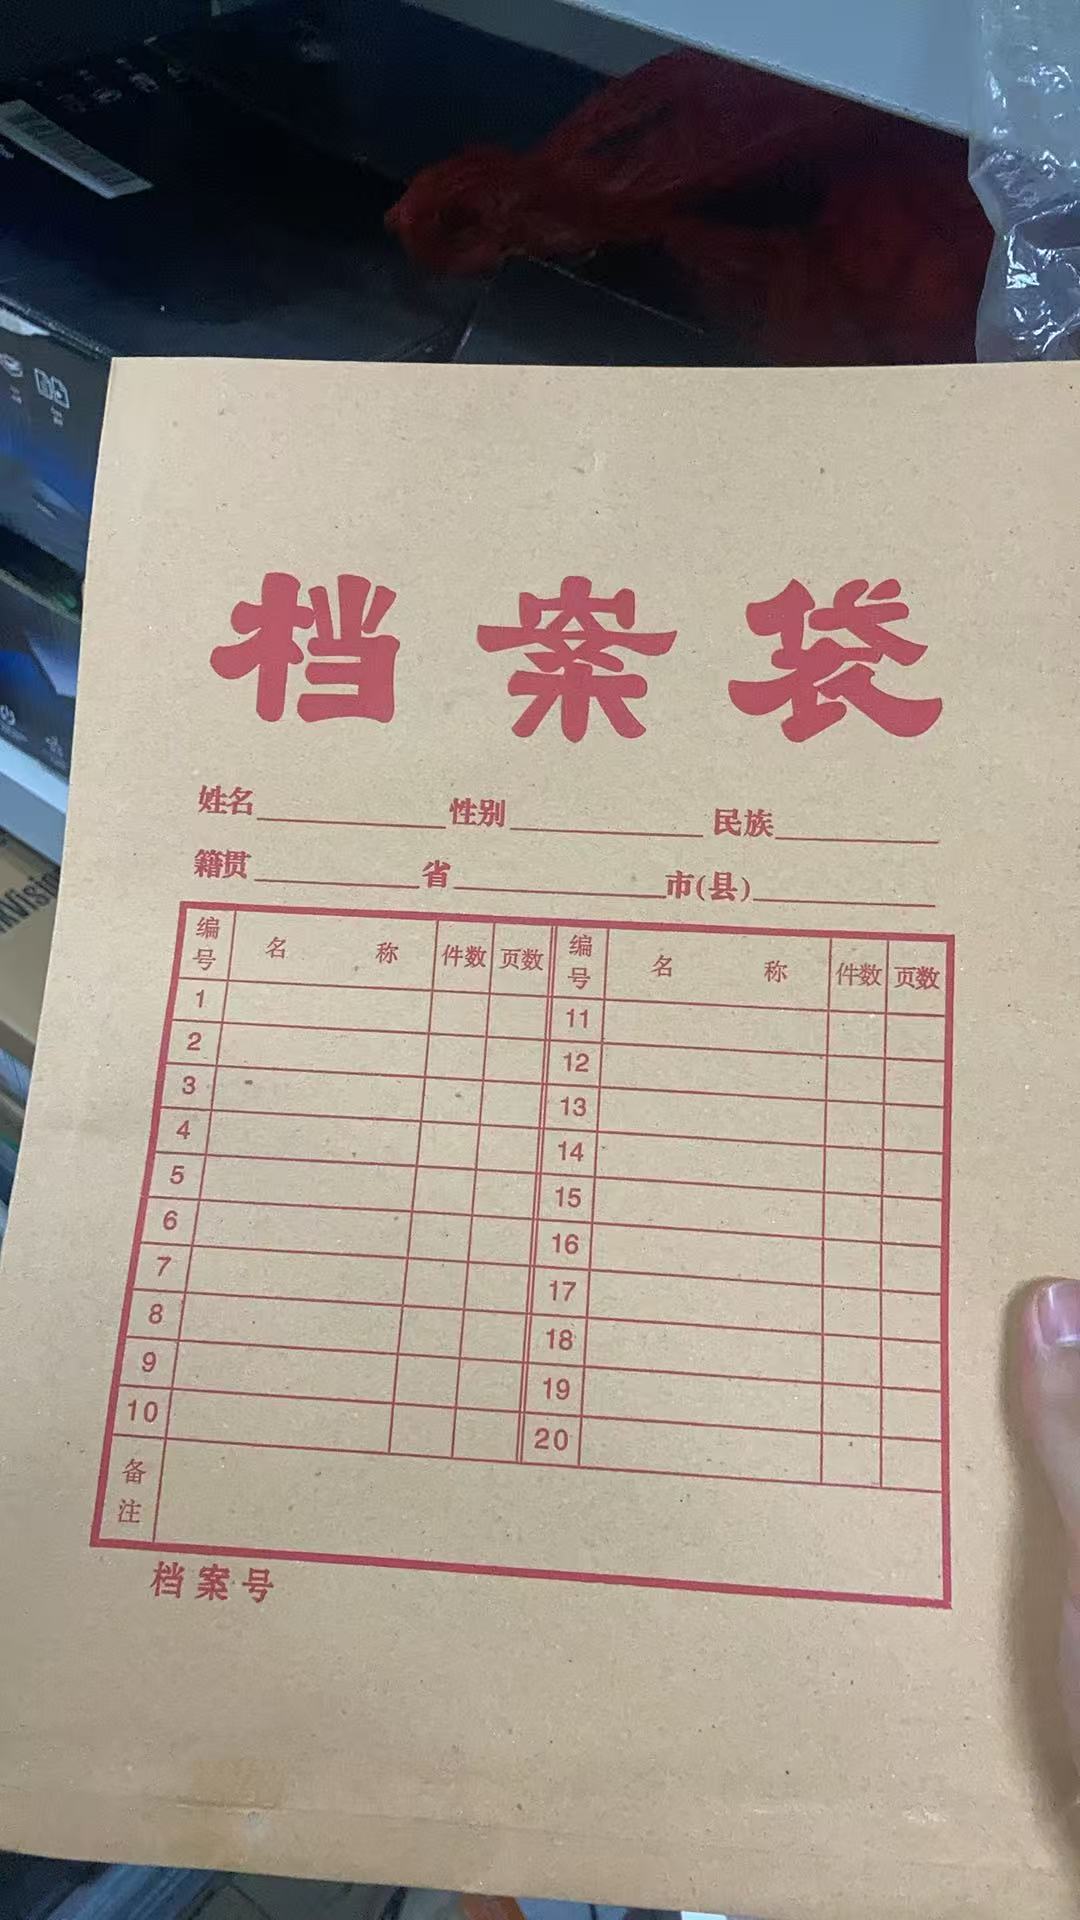 档案袋
姓名 性别 民族
籍贯 省 市(县)
编号 名称 件数 页数 编号 名称 件数 页数
1 11
2 12
3 13
4 14
5 15
6 16
7 17
8 18
9 19
10 20
备注
档案号